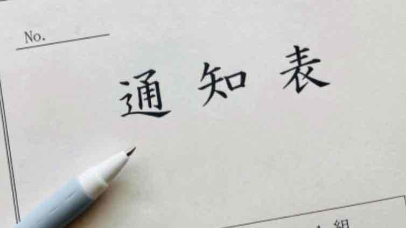 No.
通知表
組